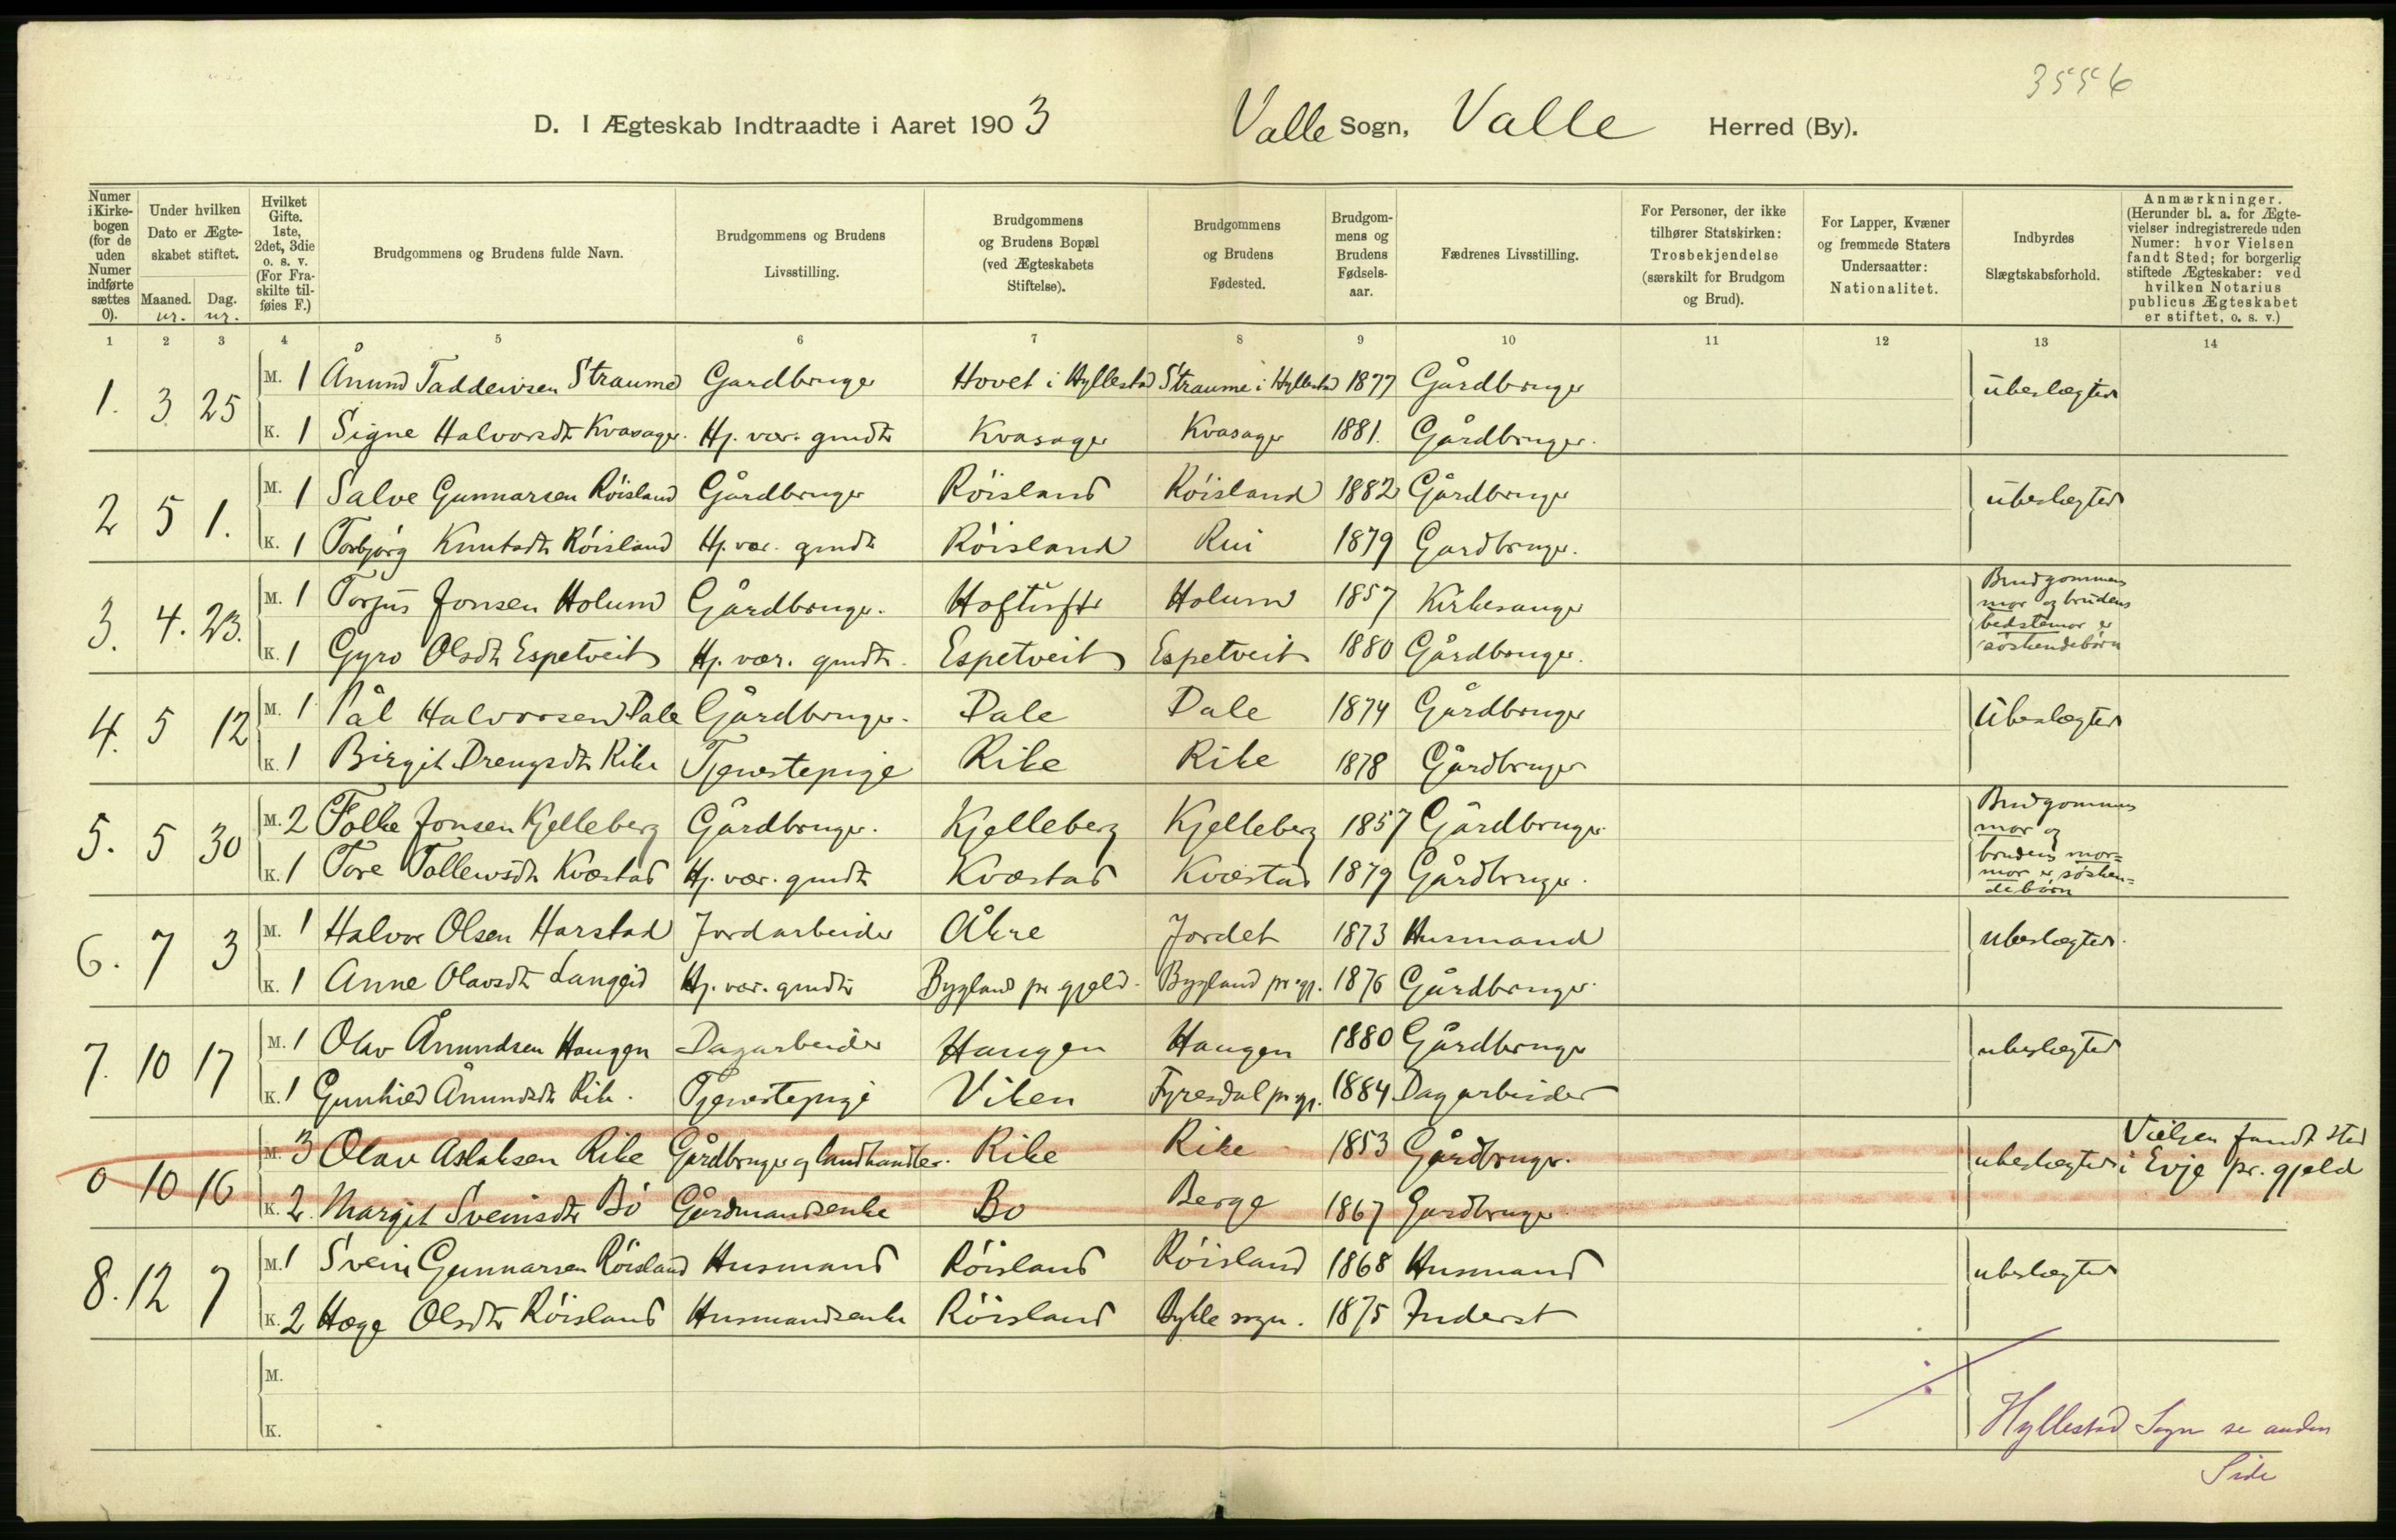 3556
D. I Ægteskab Indtraadte i Aaret 1903 Valle Sogn, Valle Herred (By).
Numer i Kirkebogen (for de uden Numer indførte sættes 0).
Under hvilken Dato er Ægteskabet stiftet.
Maaned. nr.
Dag. nr.
Hvilket Gifte. 1ste, 2det, 3die o. s. v. (For Fraskilte tilføies F.)
Brudgommens og Brudens fulde Navn.
Brudgommens og Brudens Livsstilling.
Brudgommens og Brudens Bopæl (ved Ægteskabets Stiftelse).
Brudgommens og Brudens Fødested.
Brudgommens og Brudens Fødselsaar.
Fædrenes Livsstilling.
For Personer, der ikke tilhører Statskirken: Trosbekjendelse (særskilt for Brudgom og Brud).
For Lapper, Kvæner og fremmede Staters Undersaatter: Nationalitet.
Indbyrdes Slægtskabsforhold.
Anmærkninger. (Herunder bl. a. for Ægtevielser indregistrerede uden Numer: hvor Vielsen fandt Sted; for borgerlig stiftede Ægteskaber: ved hvilken Notarius publicus Ægteskabet er stiftet, o. s. v.)
1 2 3 4 5 6 7 8 9 10 11 12 13 14
1. 3 25 M. 1 Ånund Taddeivsen Straume Gardbruger Hovet i Hyllestad Straume i Hyllestad 1877 Gårdbruger ubeslægted
K. 1 Signe Halvorsdtr Kvasager. Hj. vær. gmdtr Kvasager Kvasager 1881. Gårdbruger.
2 5 1. M. 1 Salve Gunnarsen Röisland Gårdbruger Röisland Röisland 1882 Gårdbruger ubeslægted
K. 1 Torbjörg Knutsdtr Röisland Hj. vær. gmdtr Röisland Rui 1879 Gardbruger.
3. 4. 23. M. 1 Torjus Jonsen Holum Gårdbruger. Hoftuft Holum 1857 Kirkesanger Brudgommens mor og brudens bedstemor er söskendebörn
K. 1 Gyro Olsdtr Espetveit Hj. vær. gmdtr. Espetveit Espetveit 1880 Gårdbruger.
4. 5 12 M. 1 Pål Halvorsen Dale Gårdbruger. Dale Dale 1874 Gårdbruger Ubeslægted
K. 1 Birgit Drengsdtr Rike Tjenestepige Rike Rike 1878 Gårdbruger
5. 5 30 M. 2 Folke Jonsen Kjelleberg Gårdbruger. Kjelleberg Kjelleberg 1857 Gårdbruger. Brudgommens mor og brudens mormor er söskendebörn
K. 1 Tore Tallewsdtr Kvæstad Hj. vær. gmdtr Kvæstad Kvæstad 1879 Gårdbruger.
6. 7 3 M. 1 Halvor Olsen Harstad Jordarbeider Åkre Jordet 1873 Husmand ubeslægted.
K. 1 Anne Olavsdtr Langeid Hj. vær. gmdtr Bygland pr gjeld. Bygland pr gj. 1876 Gårdbruger.
7. 10 17 M. 1 Olav Ånundsen Haugen Dagarbeider Haugen Haugen 1880 Gårdbruger ubeslægted
K. 1 Gunhild Ånundsdtr Rike. Tjenestepige Viken Fyresdal pr gj. 1884 Dagarbeider
0 10 16 M. 3 Olav Aslaksen Rike Gårdbruger og landhandler. Rike Rike 1853 Gårdbruger. ubeslægted Vielsen fandt sted i Evje pr. gjeld
K. 2. Margit Sveinsdtr Bö Gårdmandsenke Bö Berge 1867 Gardbruger.
8. 12 7 M. 1 Svein Gunnarsen Röisland Husmand Röisland Röisland 1868 Husmand ubeslægted
K. 2 Hæge Olsdtr Röisland Husmandsenke Röisland Bykle sogn. 1875 Inderst
M.
K.
Hyllestad Sogn se anden
Side